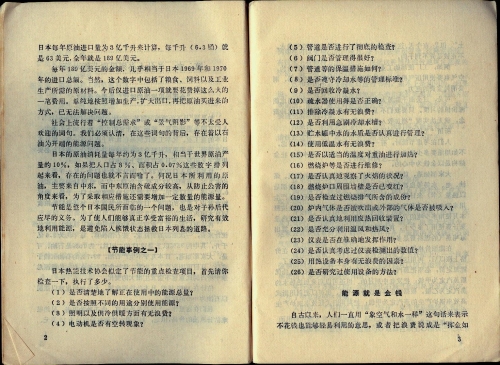 日本每年原油进口量为3亿千升来计算，每千升（6.3桶）就
是63美元，全年就是189亿美元。
每年189亿美元的金额，几乎相当于日本1969年和1970年
的进口总额。当然，这个数字中包括了粮食、饲料以及工业
生产所需的原材料。今后仅进口原油一项就要花掉这么大的
一笔费用。单纯地按照增加生产、扩大出口，再把原油买进来的方
式，已无法解决问题。
社会上流行着“控制总需求”或“氖气照影”等不太受人
欢迎的词句。我们必须认清，在这些词句的背后，存在着以石油
为开端的能源问题。
日本的原油消耗量每年约为3亿千升，相当于世界原油产
量的10%。如果把人口占3%、面积占0.07%这些数字排列
起来看，存在的问题也就不言而喻了。何况日本所利用的原
油，主要来自中东，而中东原油含硫成分较高，从防止公害的
角度来看，为了采取相应措施还需要增加一定数量的能源量。
节能是整个日本国民所面临的一个问题，也是对子孙后代
应尽的义务。为了使人们能够真正享受富裕的生活，研究有效
地利用能源，是避免陷入核惧状态拯救日本列岛的道路。
【节能事例之一】
日本热泛技术协会拟定了节能的重点检查项目，首先请你
检查一下，执行了多少。
（1）是否清楚地了解正在使用中的能源总量？
（2）是否按照不同的用途分别使用能源？
（3）照明以及供冷供暖方面有无浪费？
（4）电动机是否有空转现象？
2
（5）管道是否进行了彻底的检查？
（6）阀门是否管理得很好？
（7）管道等的保温措施如何？
（8）是否遵守冷却水等的管理标准？
（9）是否回收冷凝水？
（10）疏水器使用得是否正确？
（11）排除冷凝水有无浪费？
（12）是否利用急剧排却水槽？
（13）贮水罐中水的质量是否认真进行管理？
（14）使用低温水有无浪费？
（15）是否以适当的温度对重油进行加热？
（16）燃烧炉等是否进行检修？
（17）是否认真地观察了火焰的状况？
（18）燃烧炉口周围墙壁是否已变红？
（19）是否检查过燃烧排气所含的成份？
（20）炉内气体是否被吹出或外部的气体是否被吸入？
（21）是否认真地利用废热回收装置？
（22）是否充分利用温风和热风？
（23）仪表是否在准确地发挥作用？
（24）是否认真考虑过仪表检测出的数值？
（25）用热设备本身有无浪费的因素？
（26）是否研究过使用设备的方法？
能源就是金钱
自古以来，人们一直用“象空气和水一样”这句话来表示
不花钱也能够轻易利用的意思，或者把浪费说成是“挥金如
3